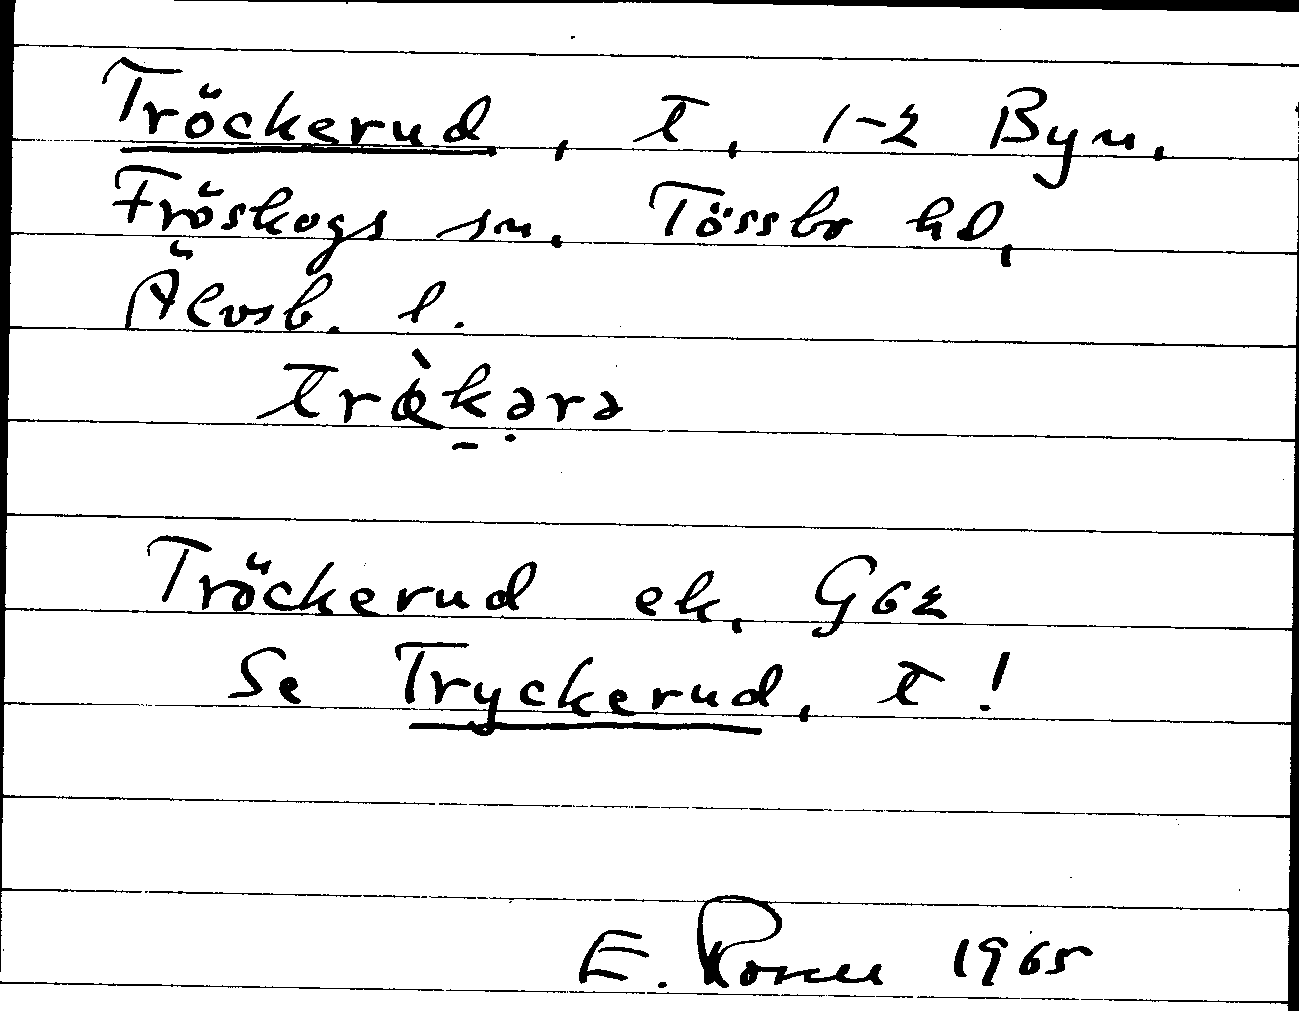 Tröckerud, t, 1-2 Byn.
Fröskogs sn. Tössbo hd,
Älvsb. l.
Tröckerud ek, G62
Se Tryckerud, t!
E. 1965